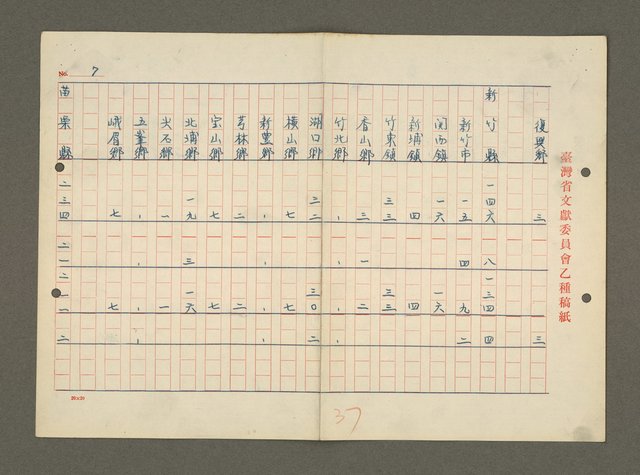 臺灣省文獻委員會乙種稿紙
復興鄉 三 三
新竹縣 一四六 八 一三四 四
新竹市 一五 四 九 二
関西鎮 一六 一六
新埔鎮 四 四
竹東鎮 三三 三三
香山鄉 三 一 二
竹北鄉 、 、 、
湖口鄉 三二 三〇 二
橫山鄉 七 七
新豐鄉 、 、 、
芎林鄉 二 二
宝山鄉 七 七
北埔鄉 一九 三 一六
尖石鄉 一 一
五峯鄉 、 、 、
峨眉鄉 七 七
苗栗縣 二三四 二一 二一一 二
No. 7
20×20
37